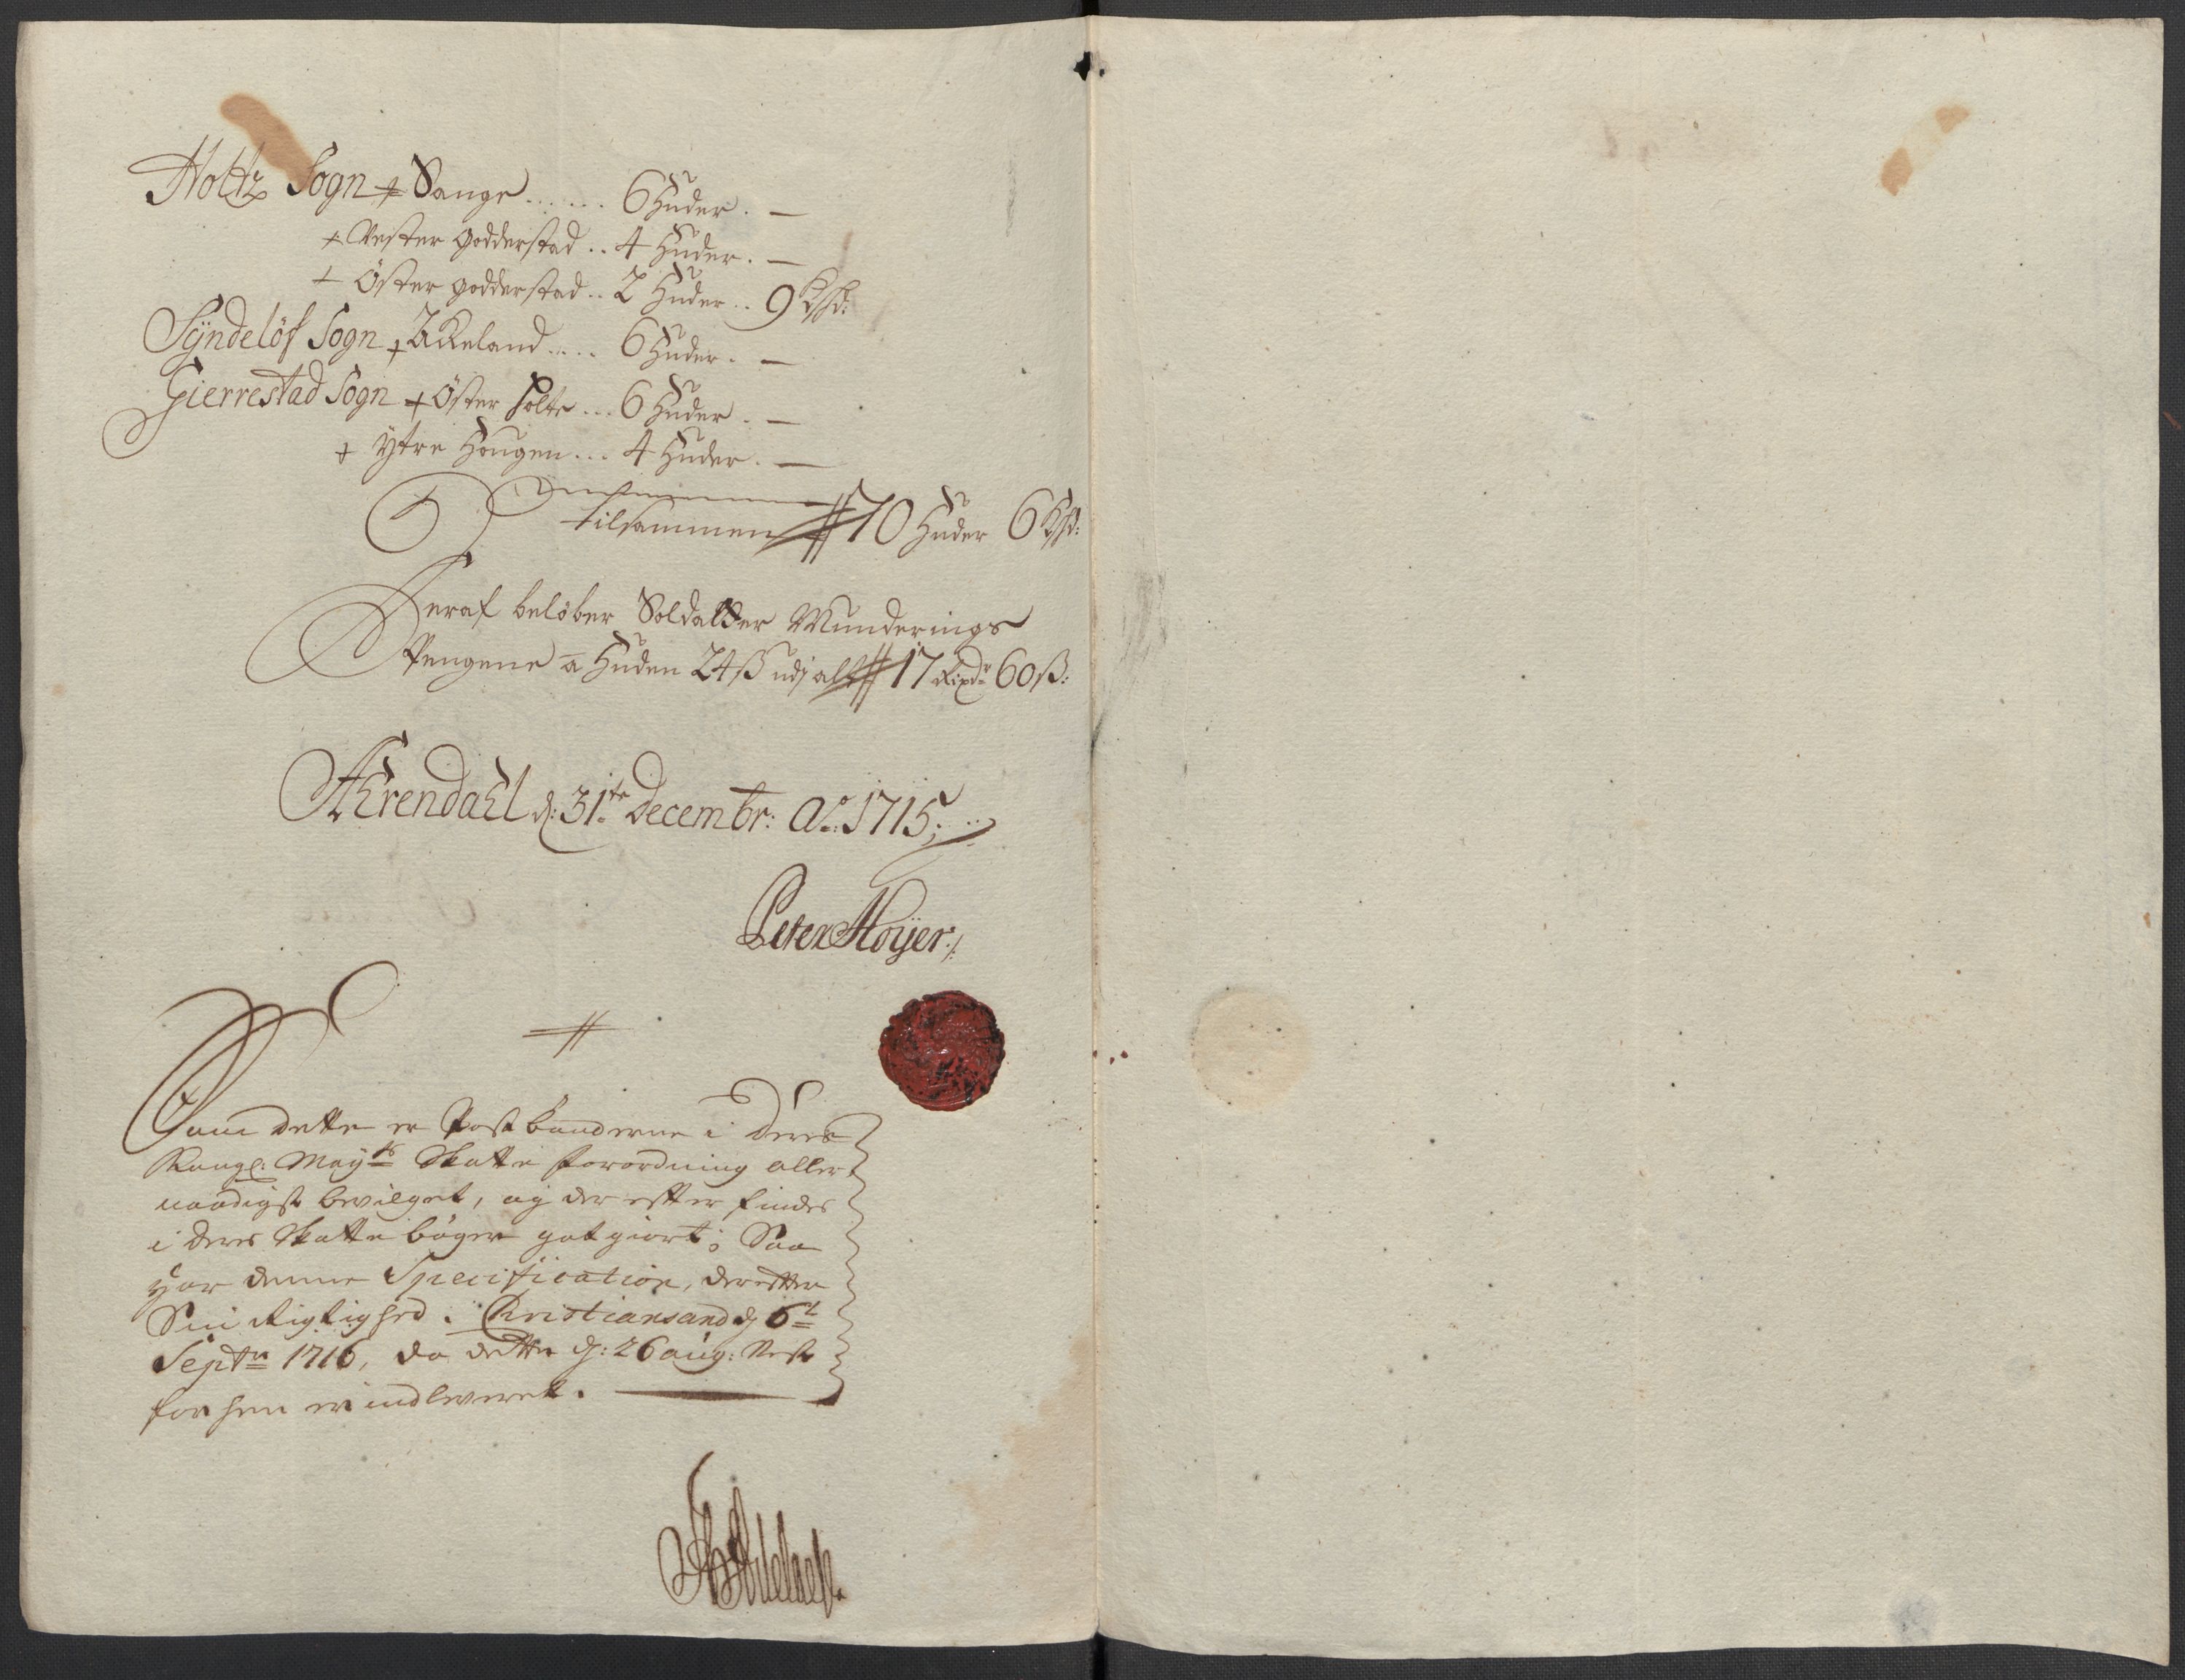 Holtz Sogn + Sange ...... 6 Huder. —
+ Vester Godderstad .. 4 Huder. —
+ Öster Godderstad .. 2 Huder .. 9 Ksk:
Syndeløf Sogn + Akeland ..... 6 Huder. —
Gierrestad Sogn + Öster Holte ... 6 Huder. —
+ Ytre Hougen ... 4 Huder. —
tilsammen 70 Huder 6 Ksk:
Heraf beløber Soldatter Munderings
Pengene a Huden 24 ß udj alt 17 Rixdr 60 ß:
Arendahl d: 31te Decembr: Ao: 1715
Peter Høyer
Som dette er Postbønderne i Deres
Kongl: Mayts Skatte forordning aller
naadigst bevilget, og der efter findes
i deres Skatte bøger gotgiort; Saa
har denne Specification, deretter
Sin Rigtighed. Christiansand d 6t
Septr 1716, da dette d: 26 aug: Nest
forhen er indleveret.